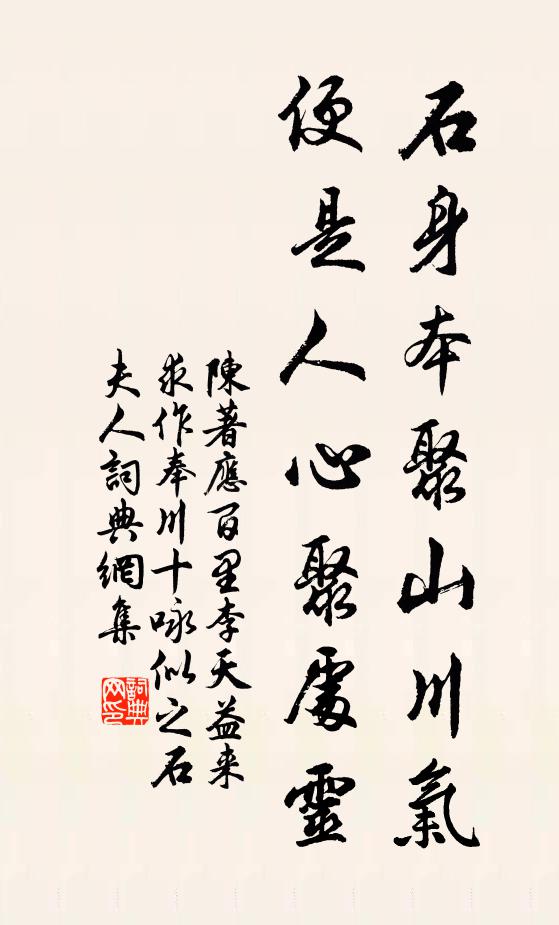 石身本聚山川氣
便是人心聚處靈
陳著應百里李天益来
求作奉川十咏似之石
夫人詞典網集
詞典
网印